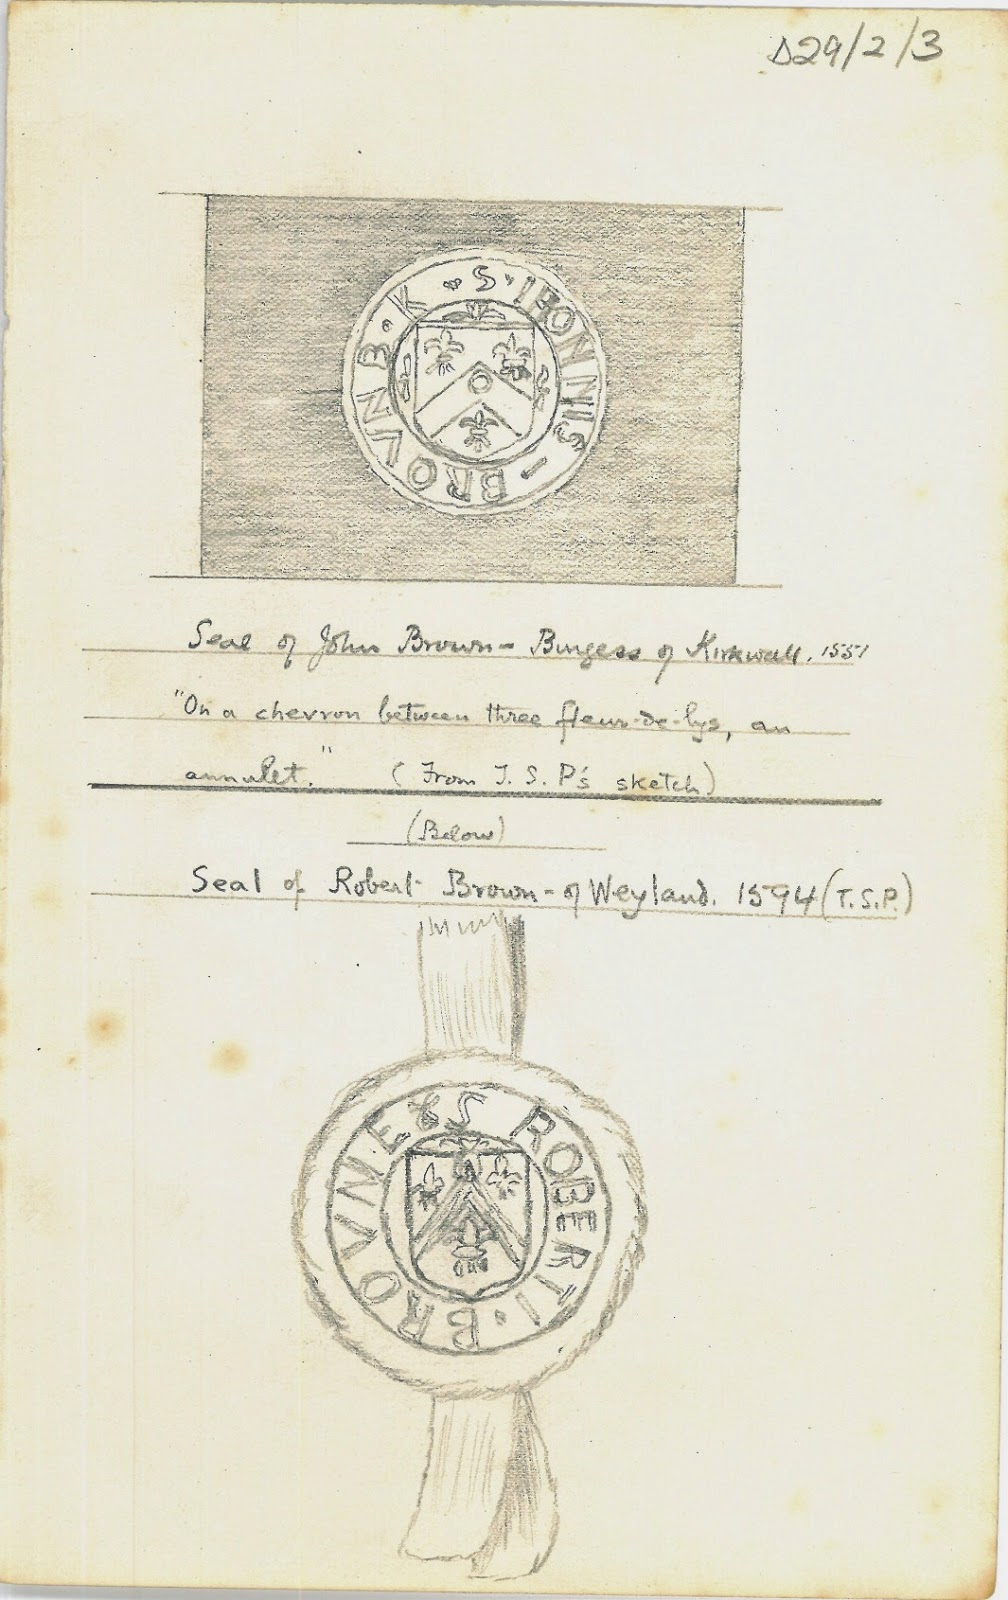 D29/2/3
· S · IHONNIS – BROUN B · K
Seal of John Brown – Burgess of Kirkwall. 1551
"On a chevron between three fleur-de-lys, an
annulet." (From T. S. P's sketch)
(Below)
Seal of Robert Brown – of Weyland. 1594 (T.S.P.)
S ROBERTI · BROVNE